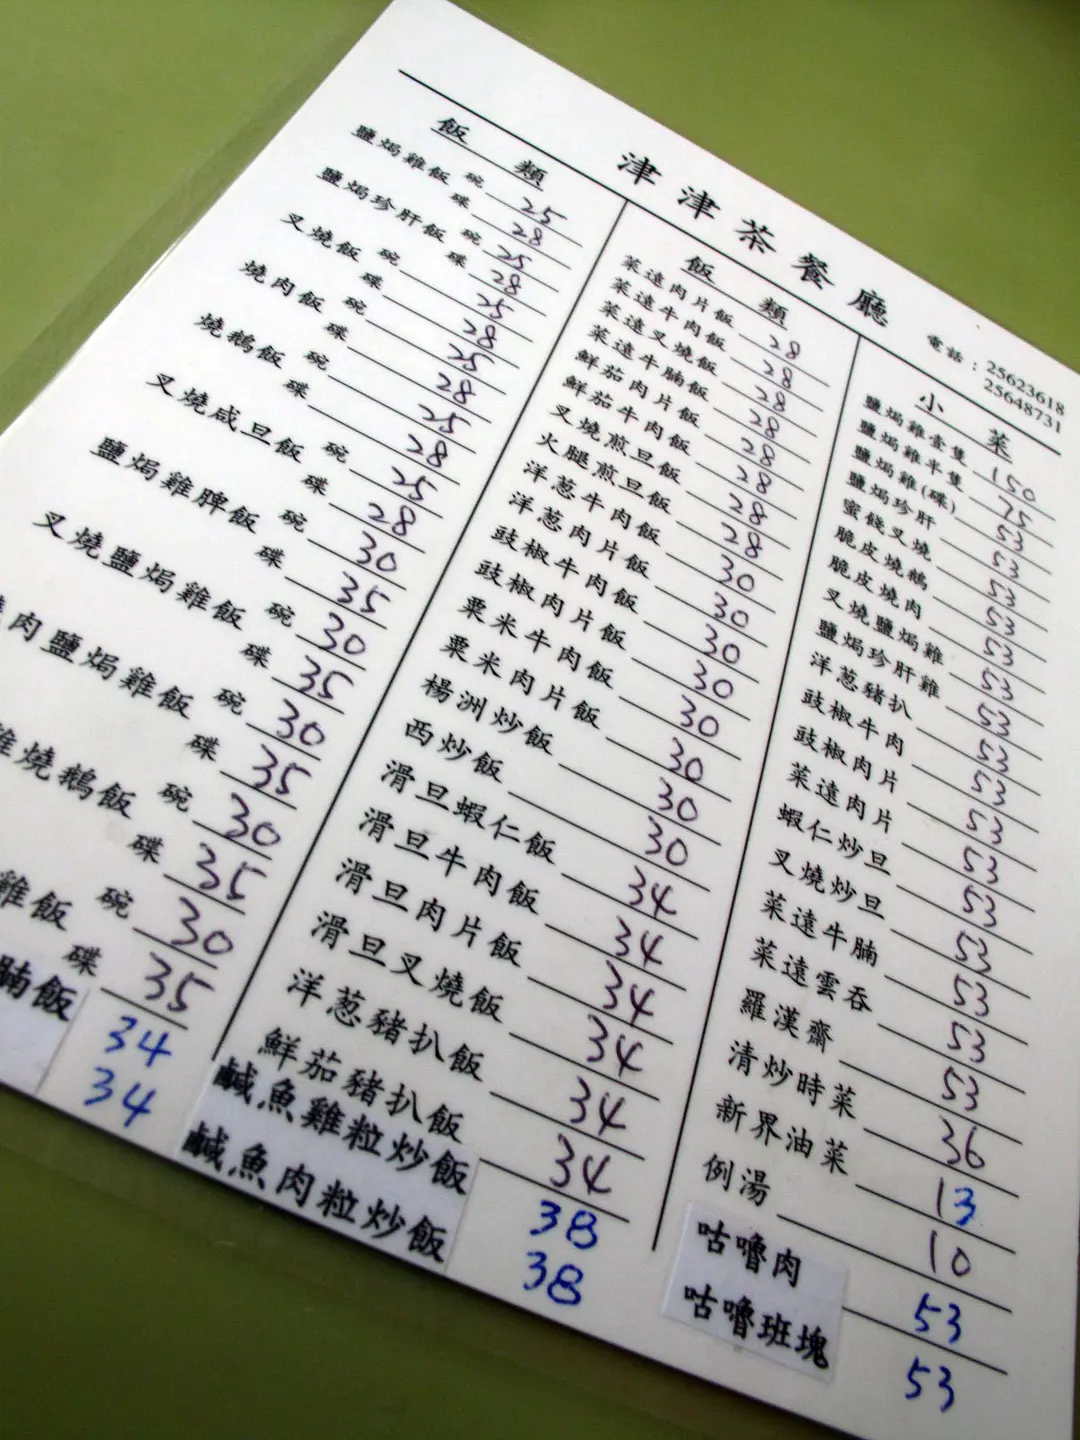 津津茶餐廳
電話：25623618
：25648731
飯類
鹽焗雞飯 碗 25
碟 28
鹽焗珍肝飯 碗 25
碟 28
叉燒飯 碗 25
碟 28
燒肉飯 碗 25
碟 28
燒鵝飯 碗 25
碟 28
叉燒咸旦飯 碗 25
碟 28
鹽焗雞脾飯 碗 30
碟 35
叉燒鹽焗雞飯 碗 30
碟 35
肉鹽焗雞飯 碗 30
碟 35
燒鵝飯 碗 30
碟 35
雞飯 碗 30
碟 35
腩飯 34
34
飯類
菜遠肉片飯 28
菜遠牛肉飯 28
菜遠叉燒飯 28
菜遠牛腩飯 28
鮮茄肉片飯 28
鮮茄牛肉飯 28
叉燒煎旦飯 28
火腿煎旦飯 28
洋葱牛肉飯 30
洋葱肉片飯 30
豉椒牛肉飯 30
豉椒肉片飯 30
粟米牛肉飯 30
粟米肉片飯 30
楊洲炒飯 30
西炒飯 30
滑旦蝦仁飯 34
滑旦牛肉飯 34
滑旦肉片飯 34
滑旦叉燒飯 34
洋葱豬扒飯 34
鮮茄豬扒飯 34
鹹魚雞粒炒飯 38
鹹魚肉粒炒飯 38
小菜
鹽焗雞壹隻 150
鹽焗雞半隻 75
鹽焗雞(碟) 53
鹽焗珍肝 53
蜜餞叉燒 53
脆皮燒鵝 53
脆皮燒肉 53
叉燒鹽焗雞 53
鹽焗珍肝雞 53
洋葱豬扒 53
豉椒牛肉 53
豉椒肉片 53
菜遠肉片 53
蝦仁炒旦 53
叉燒炒旦 53
菜遠牛腩 53
菜遠雲吞 53
羅漢齋 53
清炒時菜 36
新界油菜 13
例湯 10
咕嚕肉 53
咕嚕班塊 53